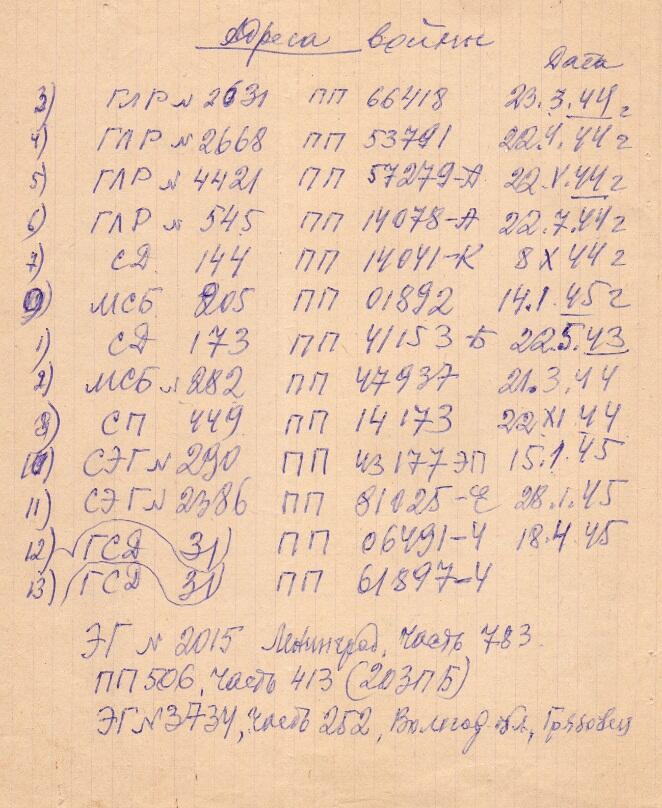 Адреса войны
Дата
3) ГЛР № 2631 ПП 66418 23.3.44 г
4) ГЛР № 2668 ПП 53791 22.4.44 г
5) ГЛР № 4421 ПП 57279-А 22.V.44 г
6) ГЛР № 545 ПП 14078-А 22.7.44 г
7) СД 144 ПП 14041-К 8 X 44 г
9) МСБ 205 ПП 01892 14.1.45 г
1) СД 173 ПП 41153 Б 22.5.43
2) МСБ № 282 ПП 47937 21.3.44
8) СП 449 ПП 14173 22 XI 44
10) СЭГ № 290 ПП 43177 ЭП 15.1.45
11) СЭГ № 2386 ПП 81025-Ф 28.1.45
12) ГСД 31) ПП 06491-Ч 18.4.45
13) ГСД 31) ПП 61897-Ч
ЭГ № 2015 Ленинград, часть 783.
ПП 506, часть 413 (203ПБ)
ЭГ № 3734, часть 252, Вологод обл, Грязовец